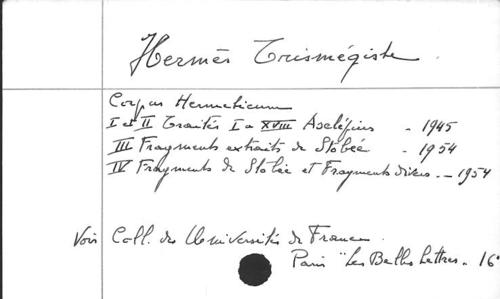 Hermès Trismégiste
Corpus Hermeticum
I et II Traités I à XVIII Asclépius - 1945
III Fragments extraits de Stobée - 1954
IV Fragments de Stobée et Fragments divers - 1954
Voir Coll. des Universités de France
Paris "Les Belles Lettres - 16°